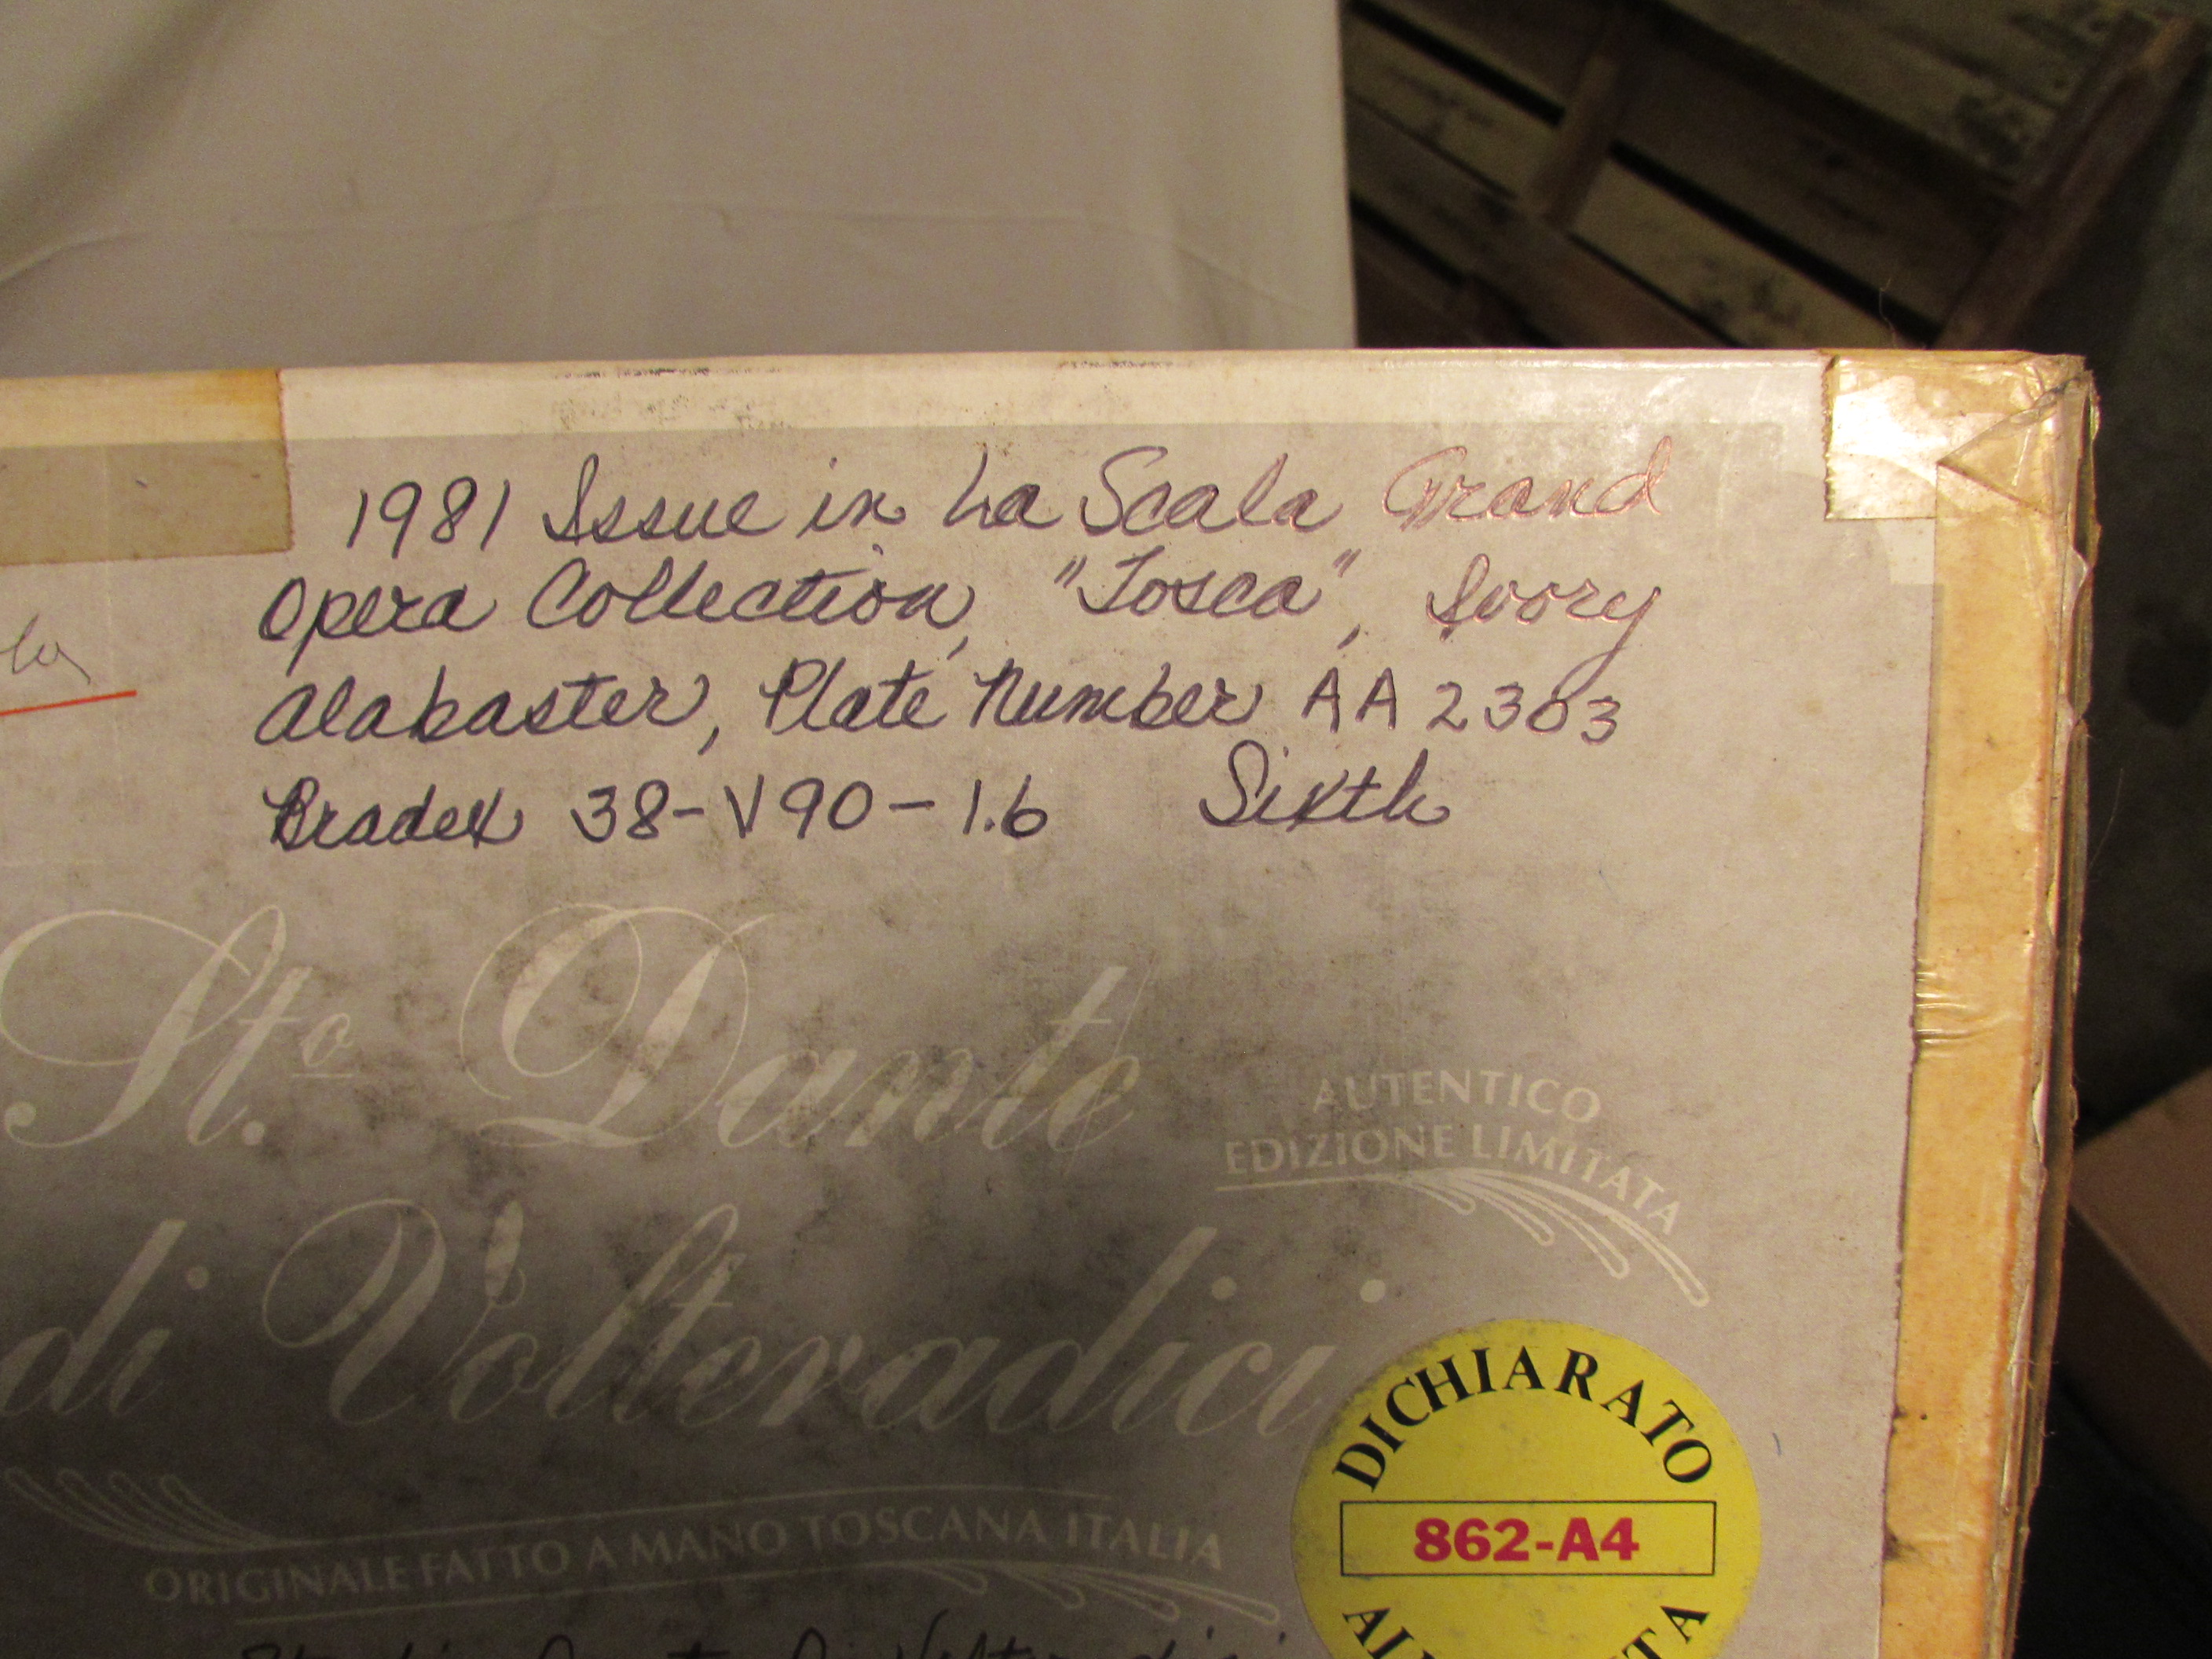 1981 Issue in La Scala Grand
Opera Collection, "Tosca", Ivory
Alabaster, Plate Number AA 2303
Bradex 38-V90-1.6 Sixth
St.o Dante
di Volteradici
AUTENTICO
EDIZIONE LIMITATA
ORIGINALE FATTO A MANO TOSCANA ITALIA
DICHIARATO
862-A4